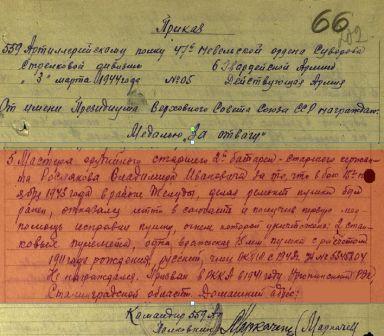 66
Приказ
559 Артиллерийскому полку 47й Невельской ордена Суворова
Стрелковой дивизии 6 Гвардейской Армии
"3" марта 1944 года №05 Действующая Армия
От имени Президиума Верховного Совета Союза ССР награждаю:
Медалью "За отвагу"
5. Мастера орудийного старшего 2й батареи - старшего сержан-
та Рослякова Владимира Ивановича за то, что в бою 15 но-
ября 1943 года в районе делая ремонт пушки был
ранен, отказался итти в санчасть и получив первую мед-
помощь исправил пушку, огнем которой уничтожено: 2 стан-
ковых пулемета, одна вражеская пушка с расчетом
1911 года рождения, русский, член ВКП(б) с
Не награждался. Призван в РККА в 1941 году РВК,
Сталинградской области. Домашний адрес:
Командир 559 Ап
Полковник